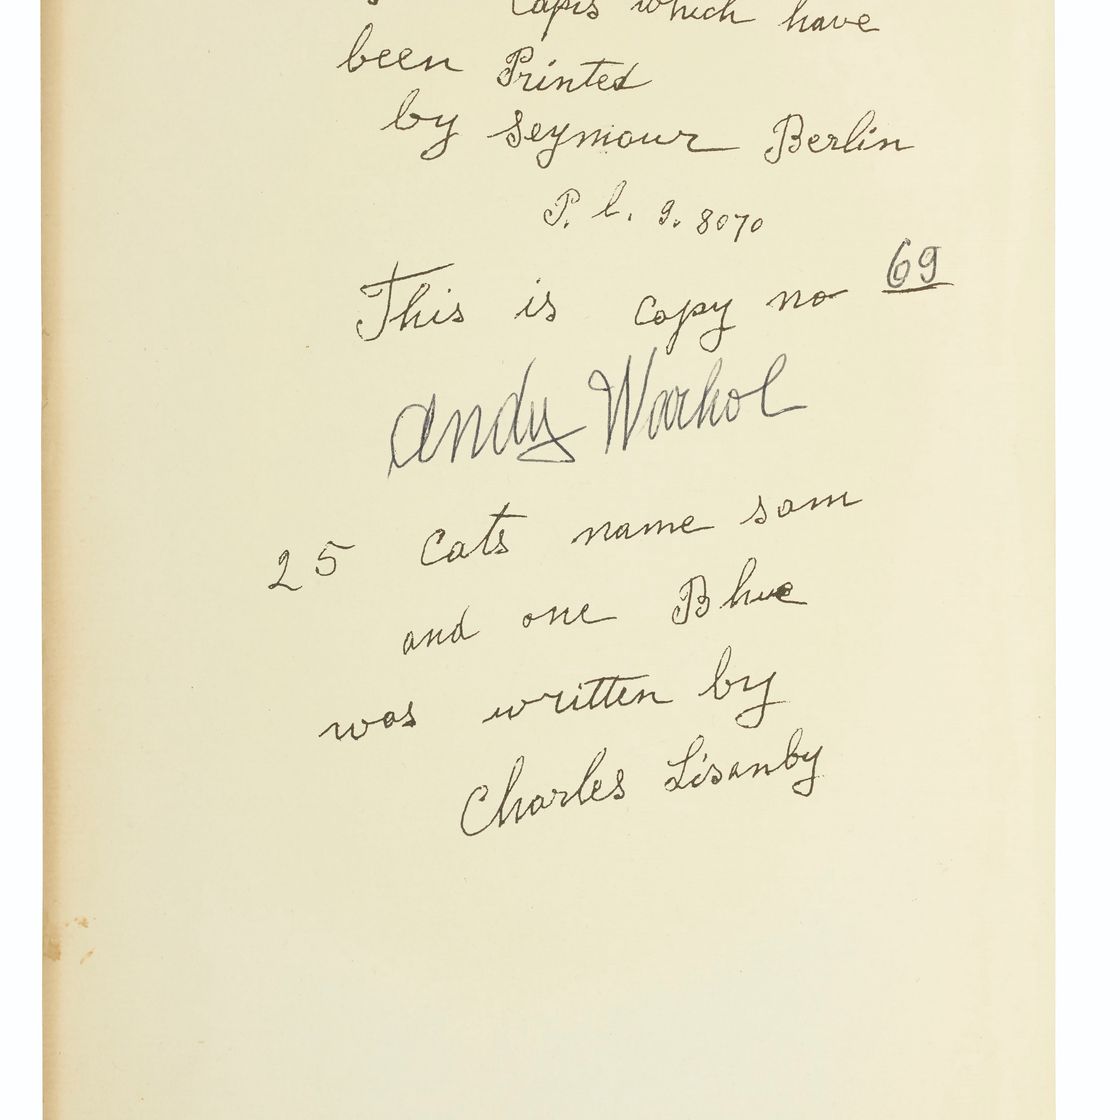 Capis which have
been Printed
by Seymour Berlin
P. l. 9. 8070
This is copy no 69
Andy Warhol
25 Cats name sam
and one Blue
was written by
Charles Lisanby